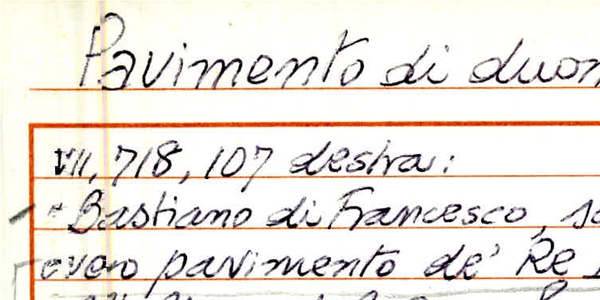 Pavimento di duom
VII, 718, 107 destra:
Bastiano di Francesco, sc
ovvero pavimento de' Re